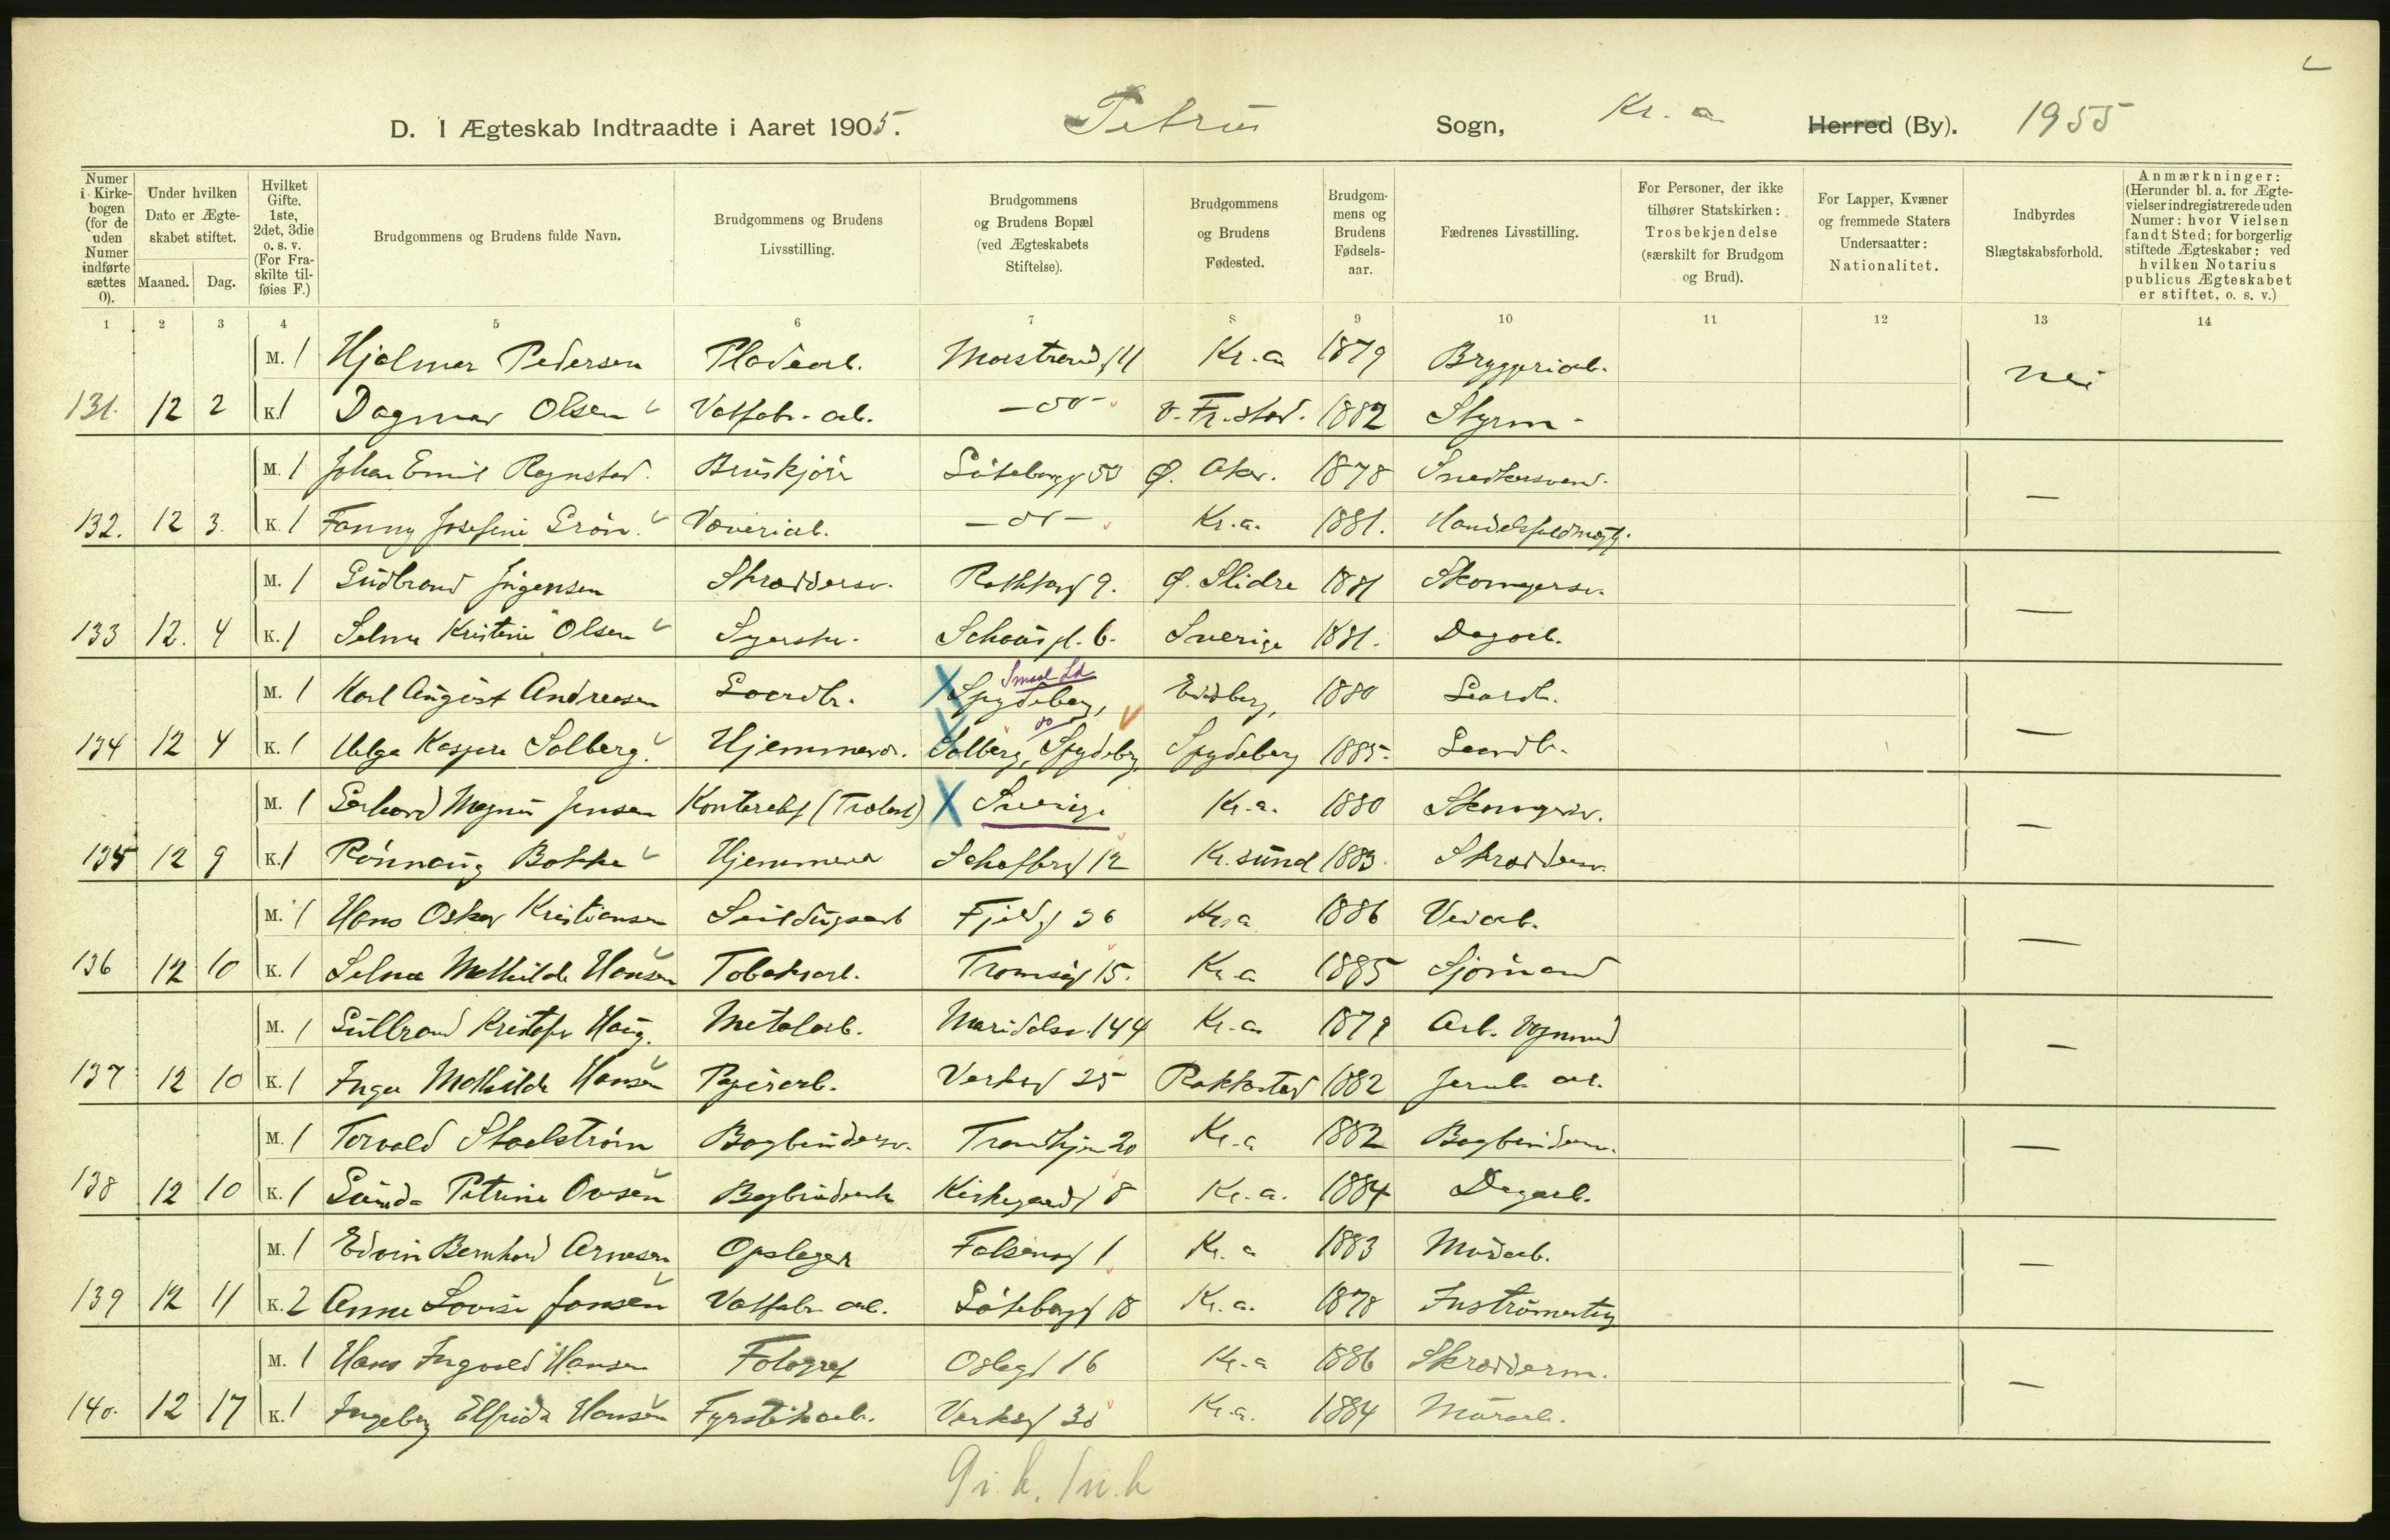 D. I Ægteskab Indtraadte i Aaret 1905. Petrus Sogn, Kr.a. Herred (By). 1955
Numer i Kirkebogen (for de uden Numer indførte sættes 0).
Under hvilken Dato er Ægteskabet stiftet.
Maaned. Dag.
Hvilket Gifte. 1ste, 2det, 3die o. s. v. (For Fraskilte tilføies F.)
Brudgommens og Brudens fulde Navn.
Brudgommens og Brudens Livsstilling.
Brudgommens og Brudens Bopæl (ved Ægteskabets Stiftelse).
Brudgommens og Brudens Fødested.
Brudgommens og Brudens Fødselsaar.
Fædrenes Livsstilling.
For Personer, der ikke tilhører Statskirken: Trosbekjendelse (særskilt for Brudgom og Brud).
For Lapper, Kvæner og fremmede Staters Undersaatter: Nationalitet.
Indbyrdes Slægtskabsforhold.
Anmærkninger: (Herunder bl. a. for Ægtevielser indregistrerede uden Numer: hvor Vielsen fandt Sted; for borgerlig stiftede Ægteskaber: ved hvilken Notarius publicus Ægteskabet er stiftet, o. s. v.)
1 2 3 4 5 6 7 8 9 10 11 12 13 14
M. 1 Hjalmar Pedersen Pladearb. 14 Kr.a 1879 Bryggeriarb. nei
131. 12 2 K. 1 Dagmar Olsen Valfabr. arb. - do - v. Fr.stad. 1882 Styrm.
M. 1 Johan Emil Rognstad. Bruskjör Götebgg 53 Ø. Aker. 1878 Snedkersvend. —
132. 12 3. K. 1 Fanny Josefine Grön. Væveriarb. - do - Kr.a. 1881. Handelsfuldmægt.
M. 1 Gudbrand Ingersen Skræddersv. 9. Ø. Slidre 1881 Skomagersv. —
133 12. 4 K. 1 Selma Kristine Olsen Syerske. Schous pl. 6. Sverige 1881. Dagarb.
M. 1 Karl August Andreasen Gaardbr. Spydeberg, Smaal. Ld Eidsberg, 1880 Gaardb. —
134 12 4 K. 1 Helga Kaspara Solberg. Hjemmevær. Solberg, Spydeberg do Spydeberg 1885. Gaardb.
M. 1 Gerhard Magnus Jensen Sverige Kr.a. 1880 Skomagersv. —
135 12 9 K. 1 Rönnaug Bakke Hjemmevær 12 Kr.sund 1883. Skræddersv.
M. 1 Hans Oskar Kristiansen Seildugsarb Fjeldg 36 Kr.a 1886 Veiarb. —
136 12 10 K. 1 Selma Mathilde Hansen Tobaksarb. Tromsög 15. Kr.a 1885 Sjömand
M. 1 Gulbrand Kristofer Haug. Metalarb. Maridalsv. 144 Kr.a 1879 Arb. Vognmand —
137 12 10 K. 1 Inga Mathilde Hansen Papirarb. Verksg 25 Rakkestad 1882 Jernb. arb.
M. 1 Torvald Staalström Bogbindersv. Trondhjem 20 Kr.a 1882 Bogbinderm. —
138 12 10 K. 1 Gunda Petrine Ovesen Bogbinderske Kirkegaardsg 8 Kr.a. 1884 Dagarb.
M. 1 Edvin Bernhard Arnesen Opslager Falsensg 1 Kr.a 1883 Murarb. —
139 12 11 K. 2 Anne Lovise Jansen Valfabr. arb. Götebgg 18 Kr.a. 1878
M. 1 Hans Ingvald Hansen Fotograf Oslog 16 Kr.a 1886 Skrædderm. —
140. 12 17 K. 1 Ingeborg Elfrida Hansen Fyrstikarb. Verksg 30 Kr.a. 1884 Murarb.
9 i. b. 1 u. b